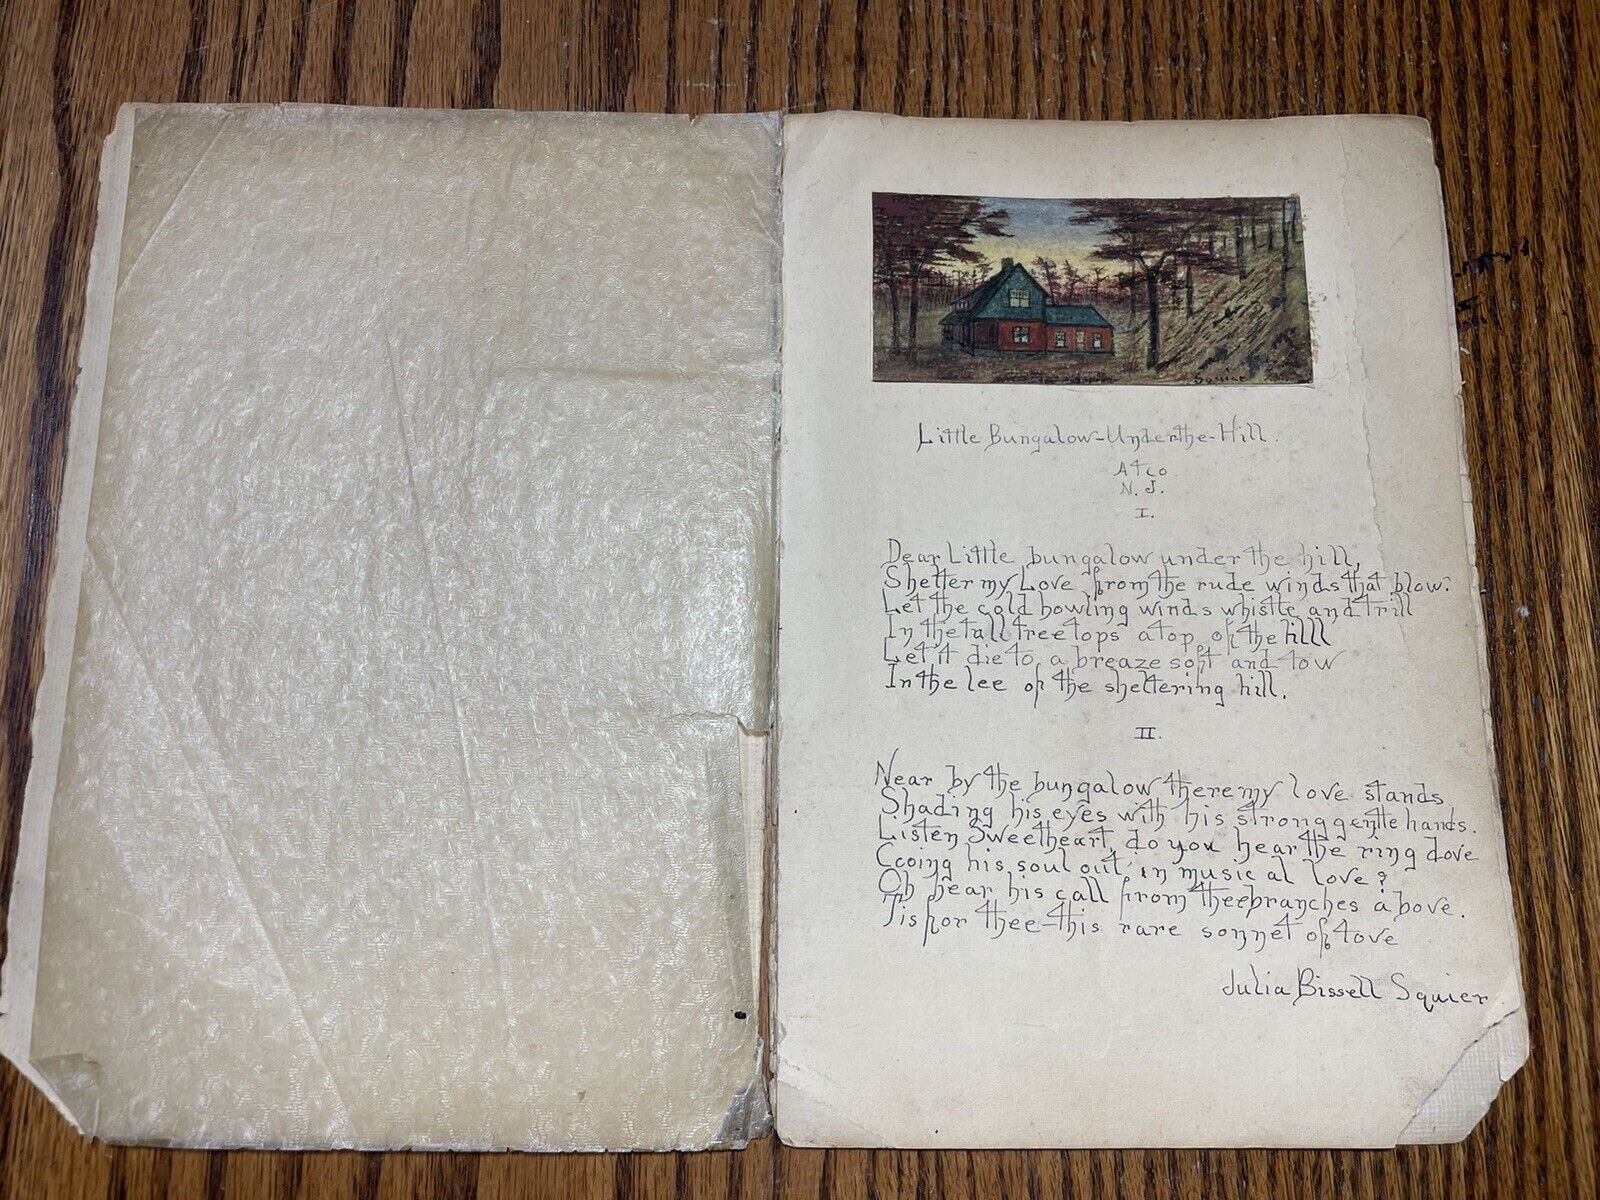 Squier
Little Bungalow-Underthe-Hill.
Atco
N. J.
I.
Dear Little bungalow under the hill,
Shelter my Love from the rude winds that blow.
Let the cold howling winds whistle and trill
In the tall treetops atop of the hill
Let it die to a breaze soft and low
In the lee of the sheltering hill.
II.
Near by the bungalow there my love stands
Shading his eyes with his strong gentle hands.
Listen Sweetheart, do you hear the ring dove
Cooing his soul out, in musical love?
Oh hear his call from thee branches above.
Tis for thee-this rare sonnet of love
Julia Bissell Squier